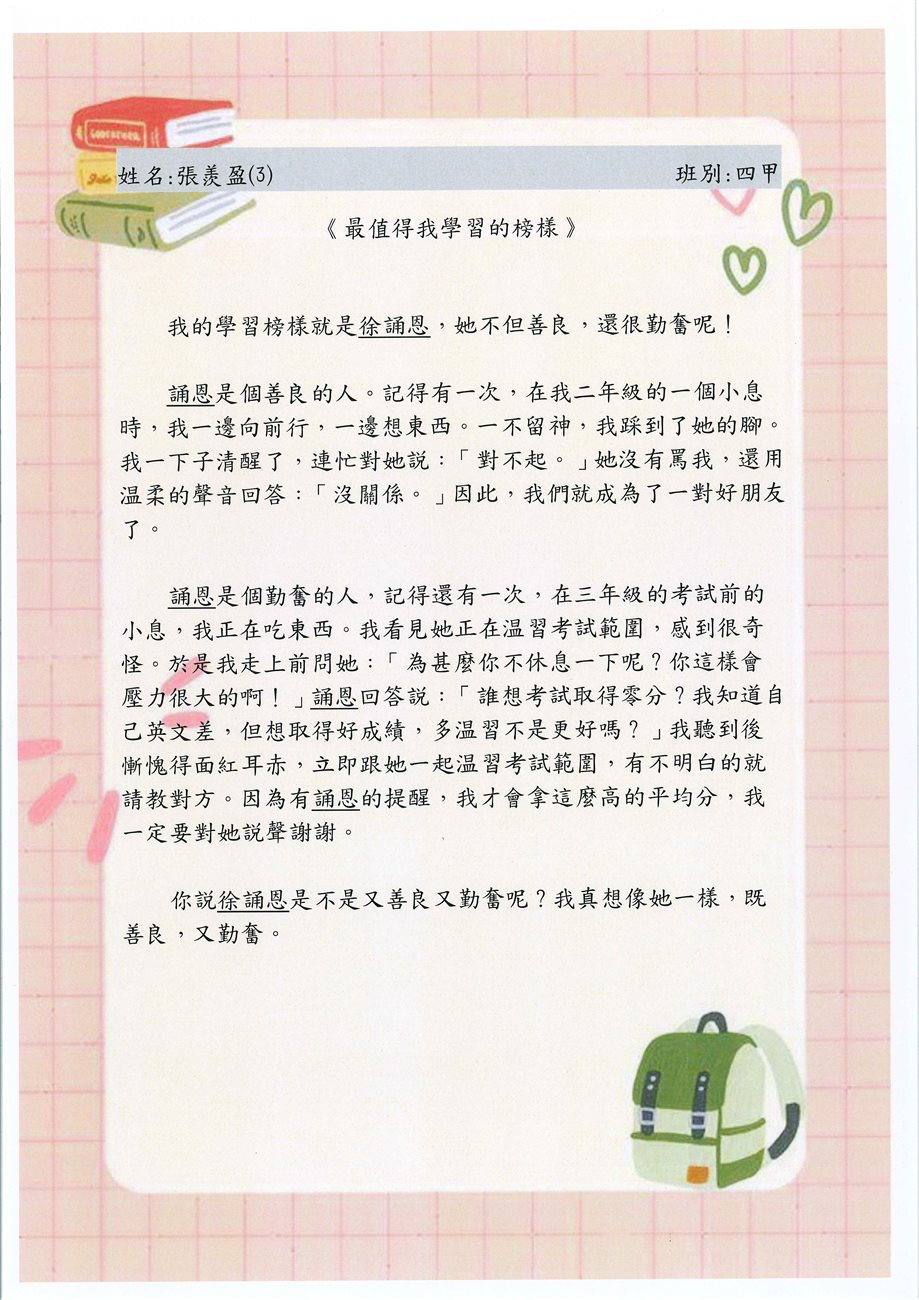 GODFATHER
姓名:張羨盈(3) 班別:四甲
《最值得我學習的榜樣》
我的學習榜樣就是徐誦恩，她不但善良，還很勤奮呢！
誦恩是個善良的人。記得有一次，在我二年級的一個小息
時，我一邊向前行，一邊想東西。一不留神，我踩到了她的腳。
我一下子清醒了，連忙對她說：「對不起。」她沒有罵我，還用
温柔的聲音回答：「沒關係。」因此，我們就成為了一對好朋友
了。
誦恩是個勤奮的人，記得還有一次，在三年級的考試前的
小息，我正在吃東西。我看見她正在温習考試範圍，感到很奇
怪。於是我走上前問她：「為甚麼你不休息一下呢？你這樣會
壓力很大的啊！」誦恩回答說：「誰想考試取得零分？我知道自
己英文差，但想取得好成績，多温習不是更好嗎？」我聽到後
慚愧得面紅耳赤，立即跟她一起温習考試範圍，有不明白的就
請教對方。因為有誦恩的提醒，我才會拿這麼高的平均分，我
一定要對她説聲謝謝。
你説徐誦恩是不是又善良又勤奮呢？我真想像她一樣，既
善良，又勤奮。